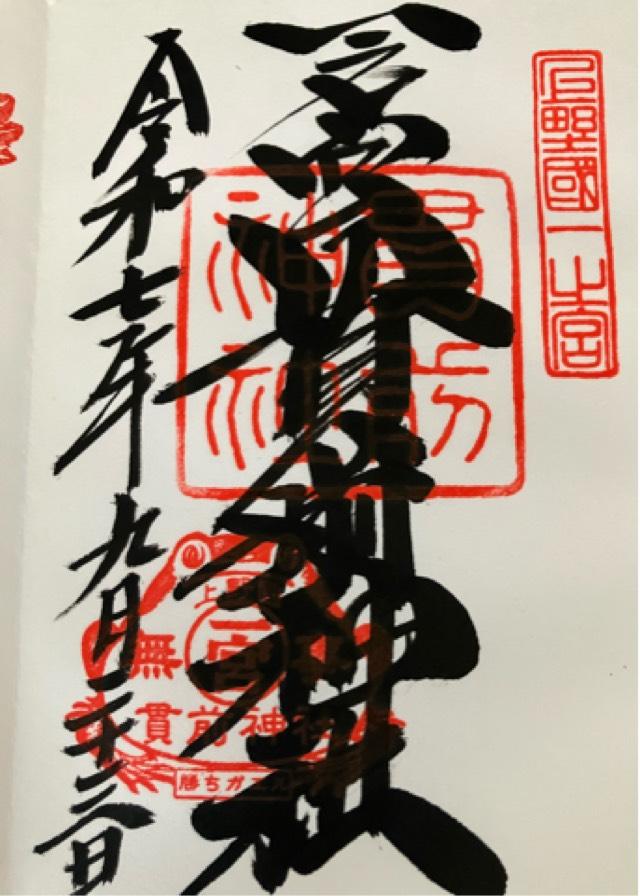 上野國一之宮
一之宮貫前神社
貫前
神社
令和七年九月二十三日
宮
無
貫前神社
勝ちガエル